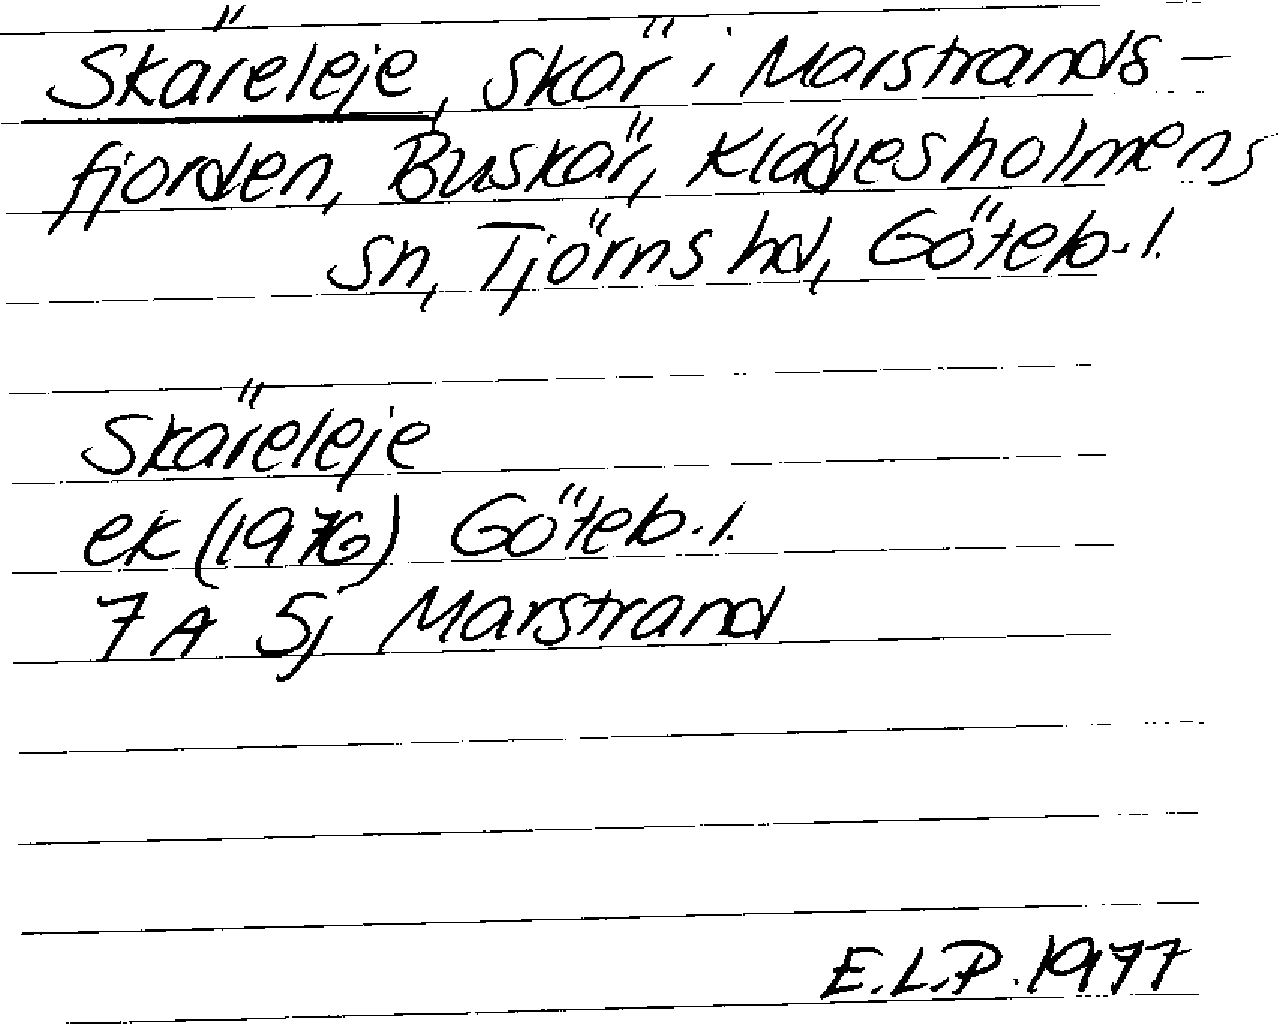 Skäreleje, skär i Marstrands-
fjorden, Buskär, Klädesholmens
sn, Tjörns hd, Göteb. l.
Skäreleje
ek (1976) Göteb. l.
7A 5j Marstrand
E.L.P. 1977